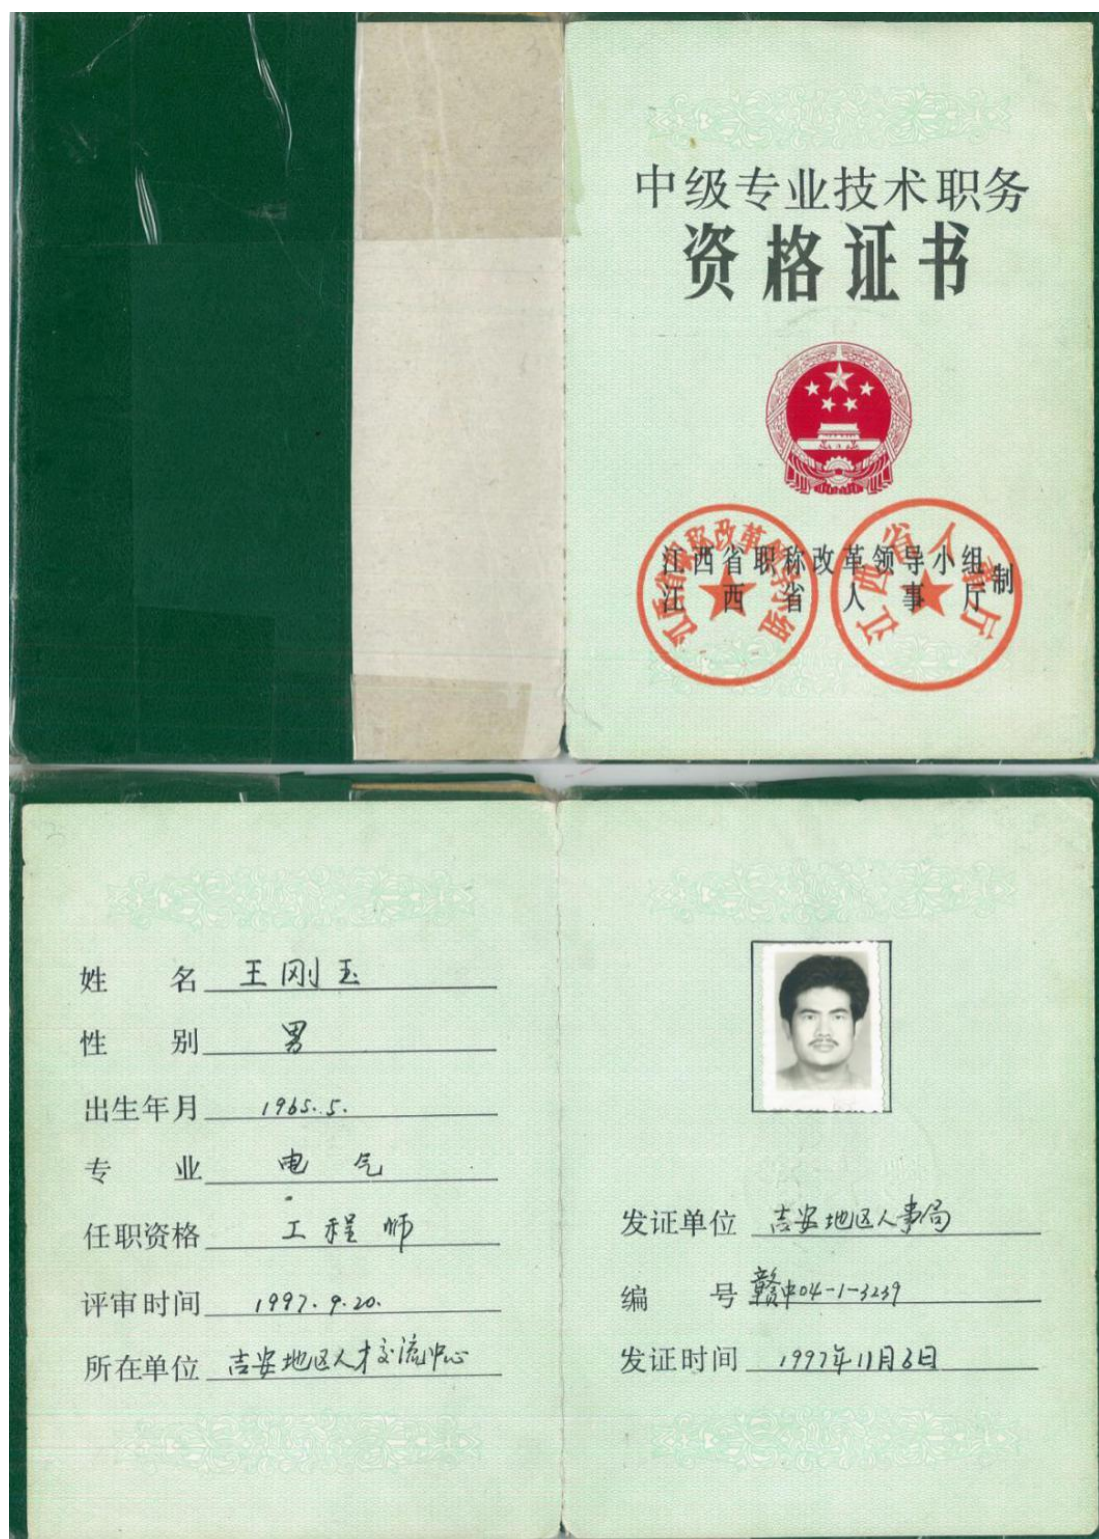 中级专业技术职务
资格证书
江西省职称改革领导小组
江西省人事厅
制
江西省职称改革领导小组
江西省人事厅
姓名 王刚玉
性别 男
出生年月 1965.5.
专业 电气
任职资格 工程师
评审时间 1997.9.20.
所在单位 吉安地区人才交流中心
发证单位 吉安地区人事局
编号 赣中04-1-3239
发证时间 1997年11月8日